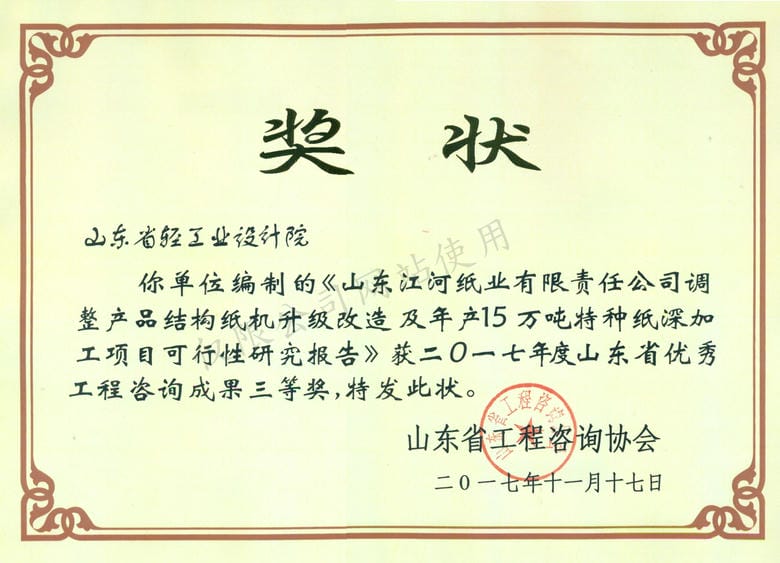 奖 状
山东省轻工业设计院
你单位编制的《山东江河纸业有限责任公司调
整产品结构纸机升级改造及年产15万吨特种纸深加
工项目可行性研究报告》获二〇一七年度山东省优秀
工程咨询成果三等奖,特发此状。
山东省工程咨询协会
山东省工程咨询协会
二〇一七年十一月十七日
仅限公司网站使用